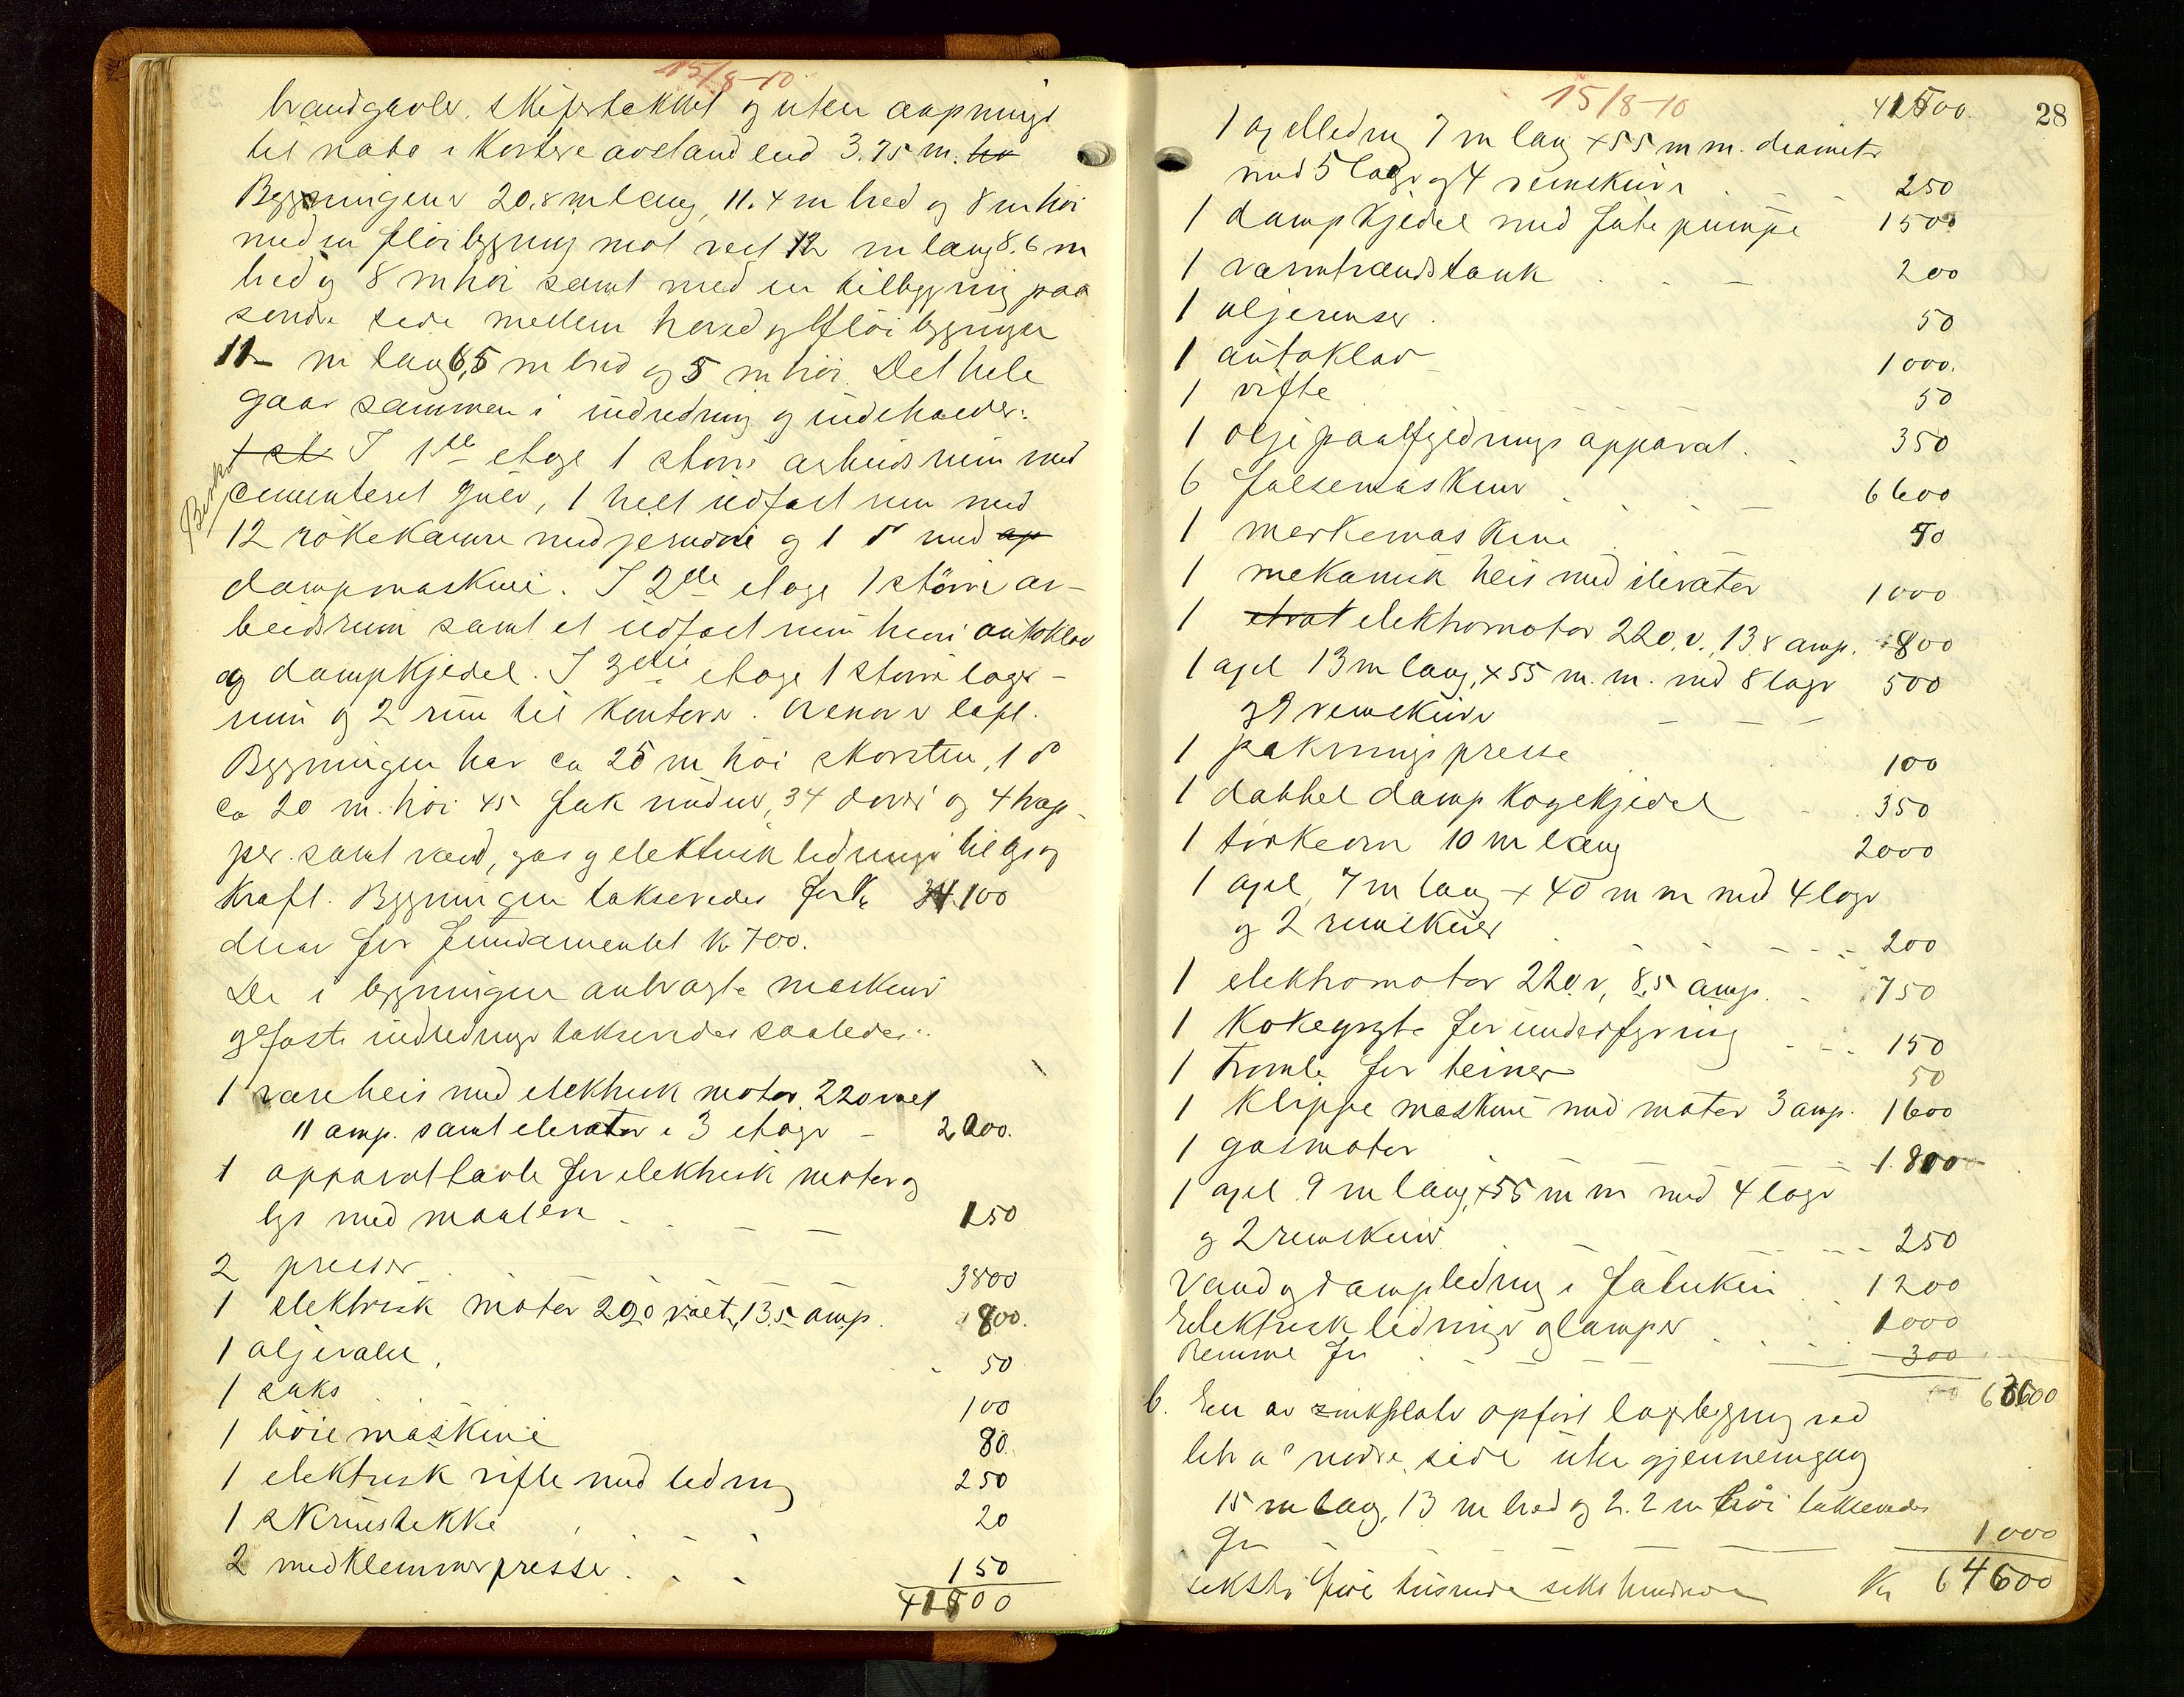 15/8-10
brandgavler, skifertækket og uten aapninger
til nabo i kortere avstand end 3.75 m. ho
Bygningens 20.8 m lang, 11.4 m bred og 8 m høi
med en fløibygning mot vest 12 m lang 8.6 m
bred og 8 m høi samt med en tilbygning paa
søndre side mellem hoved og fløibygningen
11 m lang 6,5 m bred og 5 m høi. Det hele
gaar sammen i indredning og indeholder:
I 1ste etage 1 større arbeidsrum med
cementeret gulv, 1 helt ildfast rum med
12 røkekamre med jerndøre og 1 do med ap
dampmaskine. I 2den etage 1 större ar-
beidsrum samt et ildfast rum hvori autoklav
og dampkjedel. I 3die etage 1 større lager-
rum og 2 rum til kontorer. Ovenover loft.
Bygningen har ca 25 m høi skorsten, 1 do
ca 20 m. høi 45 fak vinduer, 34 dører og 4 trap-
per samt vand, gas og elektrisk ledninger til lys og
kraft. Bygningen takseredes for Kr 34100
derav for fundamentet kr 700.
De i bygningen anbragte maskiner
og faste indredninger takseredes saaledes:
1 vareheis med elektrisk motor 220 volt
11 amp. samt elevator i 3 etager - 2200.
1 apparattavle for elektrisk motor og
lys med maalere - - 150
2 presser 3800
1 elektrisk motor 220 volt, 13,5 amp. 800.
1 oljevalse. 50
1 saks 100
1 bøiemaskine 80.
1 elektrisk vifte med ledning 250
1 skruestikke 20
2 medklemmerpresser 150
41800
15/8-10
41800. 28
1 axelledning 7 m lang x 55 m m. diameter
med 5 lager og 4 remskiver 250
1 dampkjedel med fødepumpe 1500
1 varmtvandstank 200
1 oljerenser 50
1 autoklav 1000.
1 vifte 50
1 oljepaafyldnings apparat. 350
6 falsemaskiner 6600
1 merkemaskine 50
1 mekanisk heis med elevator 1000
1 elektromotor 220 v., 13.8 amp. 800
1 axel 13 m lang, x 55 m. m. med 8 lager 500
og 9 remskiver
1 pakningspresse 100
1 dobbel damp kogekjedel 350
1 tørkeovn 10 m lang 2000
1 axel, 7 m lang x 40 m m med 4 lager
og 2 remskiver 200
1 elektromotor 220 v, 8,5 amp. 750
1 Kokegryte for underfyring 150
1 Tromle for teiner 50
1 Klippe maskine med motor 3 amp. 1600
1 gasmotor 1800
1 axel 9 m lang, x 55 m m med 4 lager
og 2 remskiver 250
Vand og dampledning i fabriken 1200
Elektrisk ledninger og lamper 1000
Remme for 300
63600
b. En av zinkplater opført lagerbygning ved
litr a's nordre side uten gjennemgang
15 m lang, 13 m bred og 2.2 m høi takseredes
for 1000
seksti fire tusende seks hundrede Kr 64600